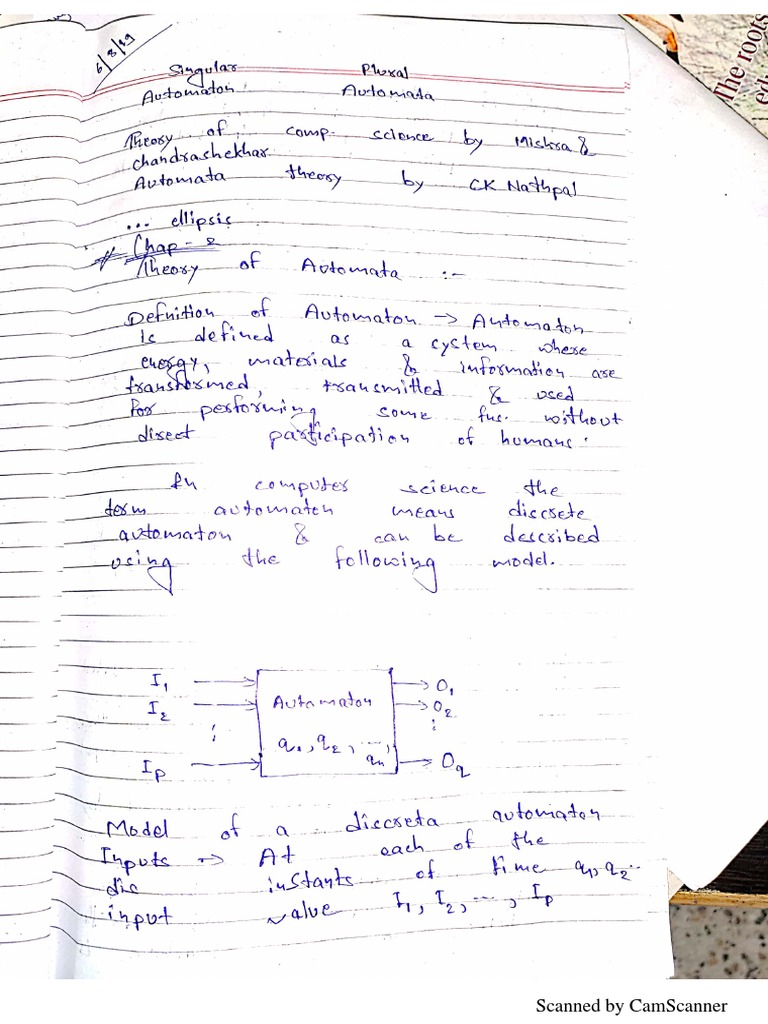 6/8/19
The roots
Singular Plural
Automaton Automata
Theory of comp science by Mishra &
chandrashekhar
Automata theory by CK Nathpal
... ellipsis
Chap - 2
Theory of Automata :-
Definition of Automaton → Automaton
is defined as a system where
energy, materials & information are
transformed, transmitted & used
for performing some fns. without
direct participation of humans.
In computer science the
term automaton means discrete
automaton & can be described
using the following model.
I1 → Automaton → O1
I2 → → O2
⋮ q1, q2, ..., qn ⋮
Ip → → Oq
Model of a discreta automaton
Inputs → At each of the
dis instants of time q1, q2 ..
input value I1, I2, ..., Ip
Scanned by CamScanner